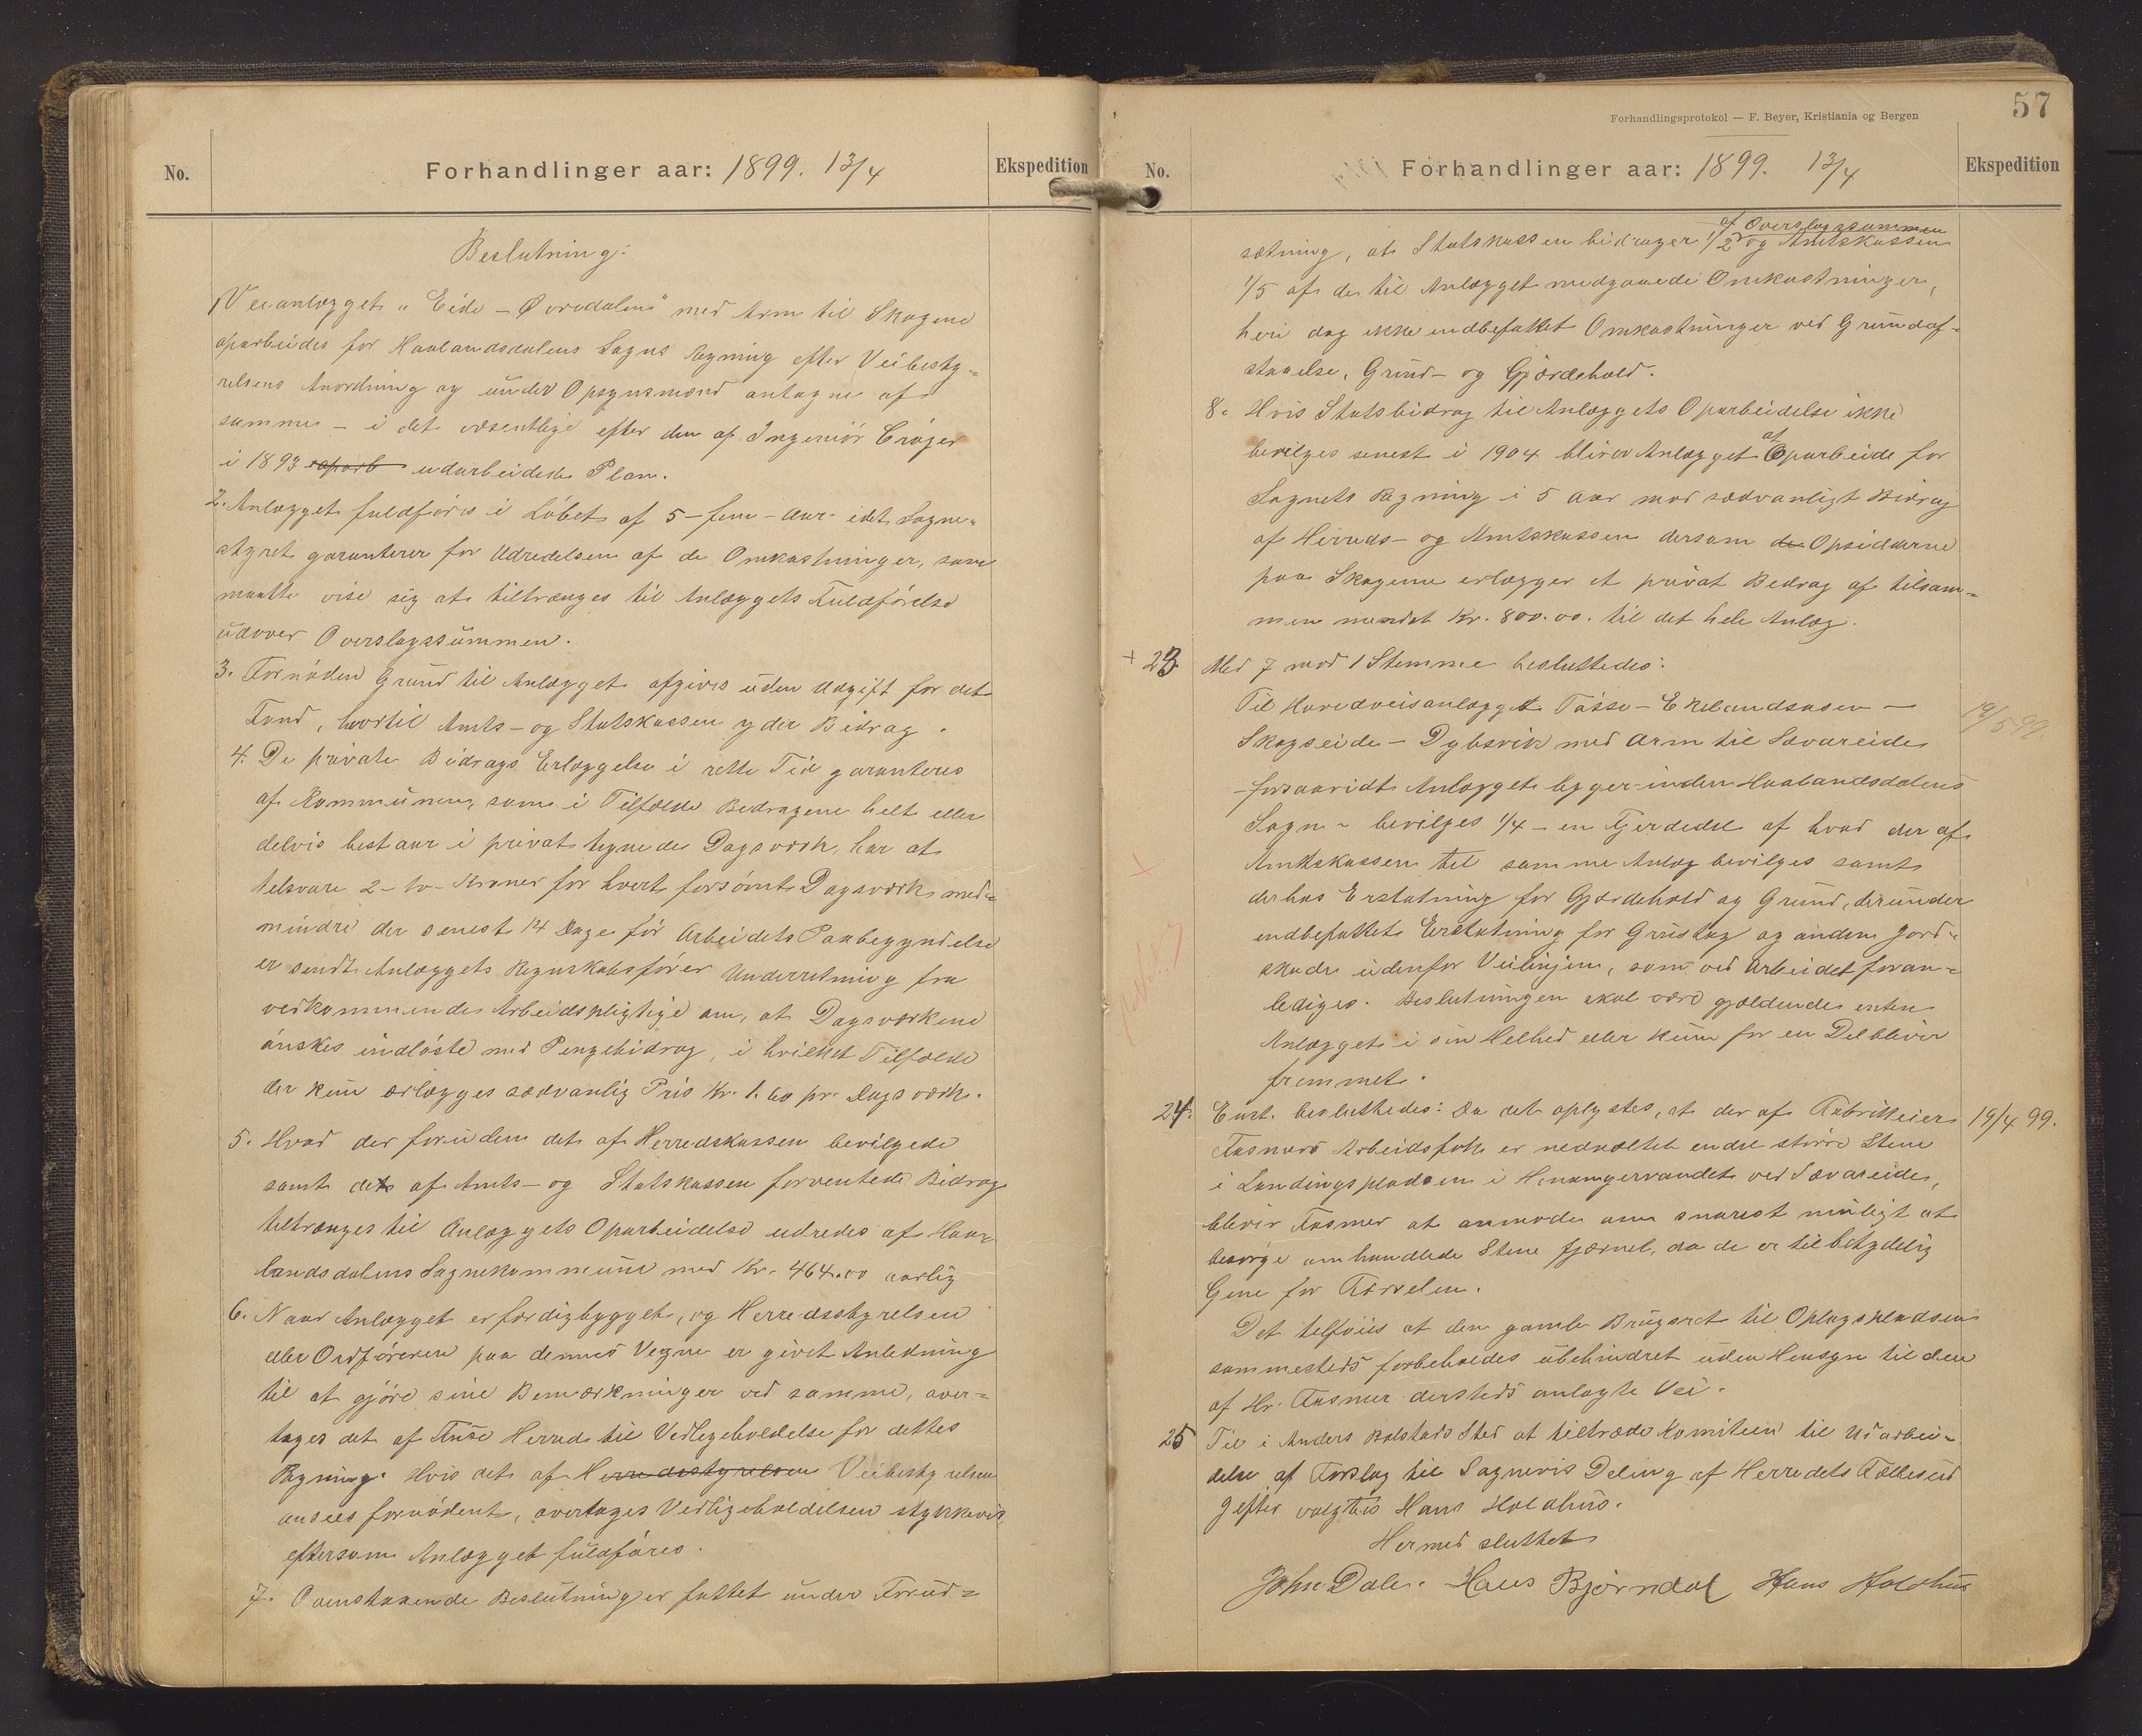 No. Forhandlinger aar: 1899. 13/4 Ekspedition
Beslutning:
1 Veianlægget "Eide - Øvredalen" med Arm til Skogene
oparbeides for Haalandsdalens Sogns Regning efter Veibesty=
relsens Anordning og under Opsynsmænd antagne af
samme - i det væsentlige efter den af Ingeniør Crøger
i 1893 udarbeidede Plan.
2. Anlægget fuldføres i Løbet af 5 - fem - Aar idet Sogne=
styret garanterer for Udredelsen af de Omkostninger, som
maatte vise sig at tiltrænges til Anlæggets Fuldførelse
udover Overslagssummen.
3. Fornøden Grund til Anlægget afgives uden Udgift for det
Fond, hvortil Amts- og Statskassen yder Bidrag.
4. De private Bidrags Erlæggelse i rette Tid garanteres
af Kommunen, som i Tilfælde Bidragene helt eller
delvis bestaar i privat tegnede Dagsværk, har at
tilsvare 2 - to - Kroner for hvert forsømt Dagsværk, med=
mindre der senest 14 Dage før Arbeidets Paabegyndelse
er sendt Anlæggets Regnskabsfører Underretning fra
vedkommende Arbeidspligtige om, at Dagsværkene
ønskes indløste med Pengebidrag, i hvilket Tilfælde
der kun erlægges sædvanlig Pris Kr. 1.60 pr. Dagsværk.
5. Hvad der foruden det af Herredskassen bevilgede
samt det af Amts- og Statskassen forventede Bidrag
tiltrænges til Anlæggets Oparbeidelse udredes af Haa=
landsdalens Sognekommune med Kr. 464.00 aarlig
6. Naar Anlægget er færdigbygget, og Herredsstyrelsen
eller Ordføreren paa dennes Vegne er givet Anledning
til at gjøre sine Bemærkninger ved samme, over=
tages det af Fuse Herred til Vedligeholdelse for dettes
Regning. Hvis det af Herredsstyrelsen Veibestyrelsen
ansees fornødent, overtages Vedligeholdelsen stykkevis,
eftersom Anlægget fuldføres.
7. Ovenstaaende Beslutning er fattet under Forud=
Forhandlingsprotokol — F. Beyer, Kristiania og Bergen
57
No. Forhandlinger aar: 1899. 13/4 Ekspedition
af Overslagssummen
sætning, at Statskassen bidrager 1/2 og Amtskassen
1/5 af de til Anlægget medgaaede Omkostninger,
heri dog ikke indbefattet Omkostninger ved Grundaf=
staaelse, Grund- og Gjærdehold.
8. Hvis Statsbidrag til Anlæggets Oparbeidelse ikke
bevilges senest i 1904 bliver Anlægget at Oparbeide for
Sognets Regning i 5 Aar mod sædvanligt Bidrag
af Herreds- og Amtskassen dersom de Opsidderne
paa Skogene erlægger et privat Bidrag af tilsam=
men mindst Kr. 800.00. til det hele Anlæg.
+ 23. Med 7 mod 1 Stemme besluttedes:
Til Hovedveisanlægget Tøsse - Ekelandsosen -
Skogseide - Dybsvik med Arm til Sævareide 19/5 99.
- forsaavidt Anlægget ligger inden Haalandsdalens
Sogn - bevilges 1/4 - en Fjerdedel af hvad der af
Amtskassen til samme Anlæg bevilges samt
derhos Erstatning for Gjærdehold og Grund, derunder
indbefattet Erstatning for Grustag og anden Jord=
skade udenfor Veilinjen, som ved Arbeidet foran=
lediges. Beslutningen skal være gjældende enten
Anlægget i sin Helhed eller kun for en Del bliver
fremmet.
24. Enst. besluttedes: Da det oplystes, at der af Fabrikeier 19/4 99.
Fasmers Arbeidsfolk er nedvæltet endel større Stene
i Landingspladsen i Henangervandet ved Sævareide,
bliver Fasmer at anmode om snarest muligt at
besørge omhandlede Stene fjernet, da de er til betydelig
Gene for Færselen.
Det tilføies at den gamle Brugsret til Oplagspladsen
sammesteds forbeholdes ubehindret uden Hensyn til den
af Hr. Fasmer dersteds anlagte Vei.
25 Til i Anders Bolstads Sted at tiltræde Komiteen til Udarbei=
delse af Forslag til Sognevis Deling af Herredets Fællesud
gifter valgtes Hans Holdhus.
Hermed sluttet
John Dale. Hans Bjørndal Hans Holdhus